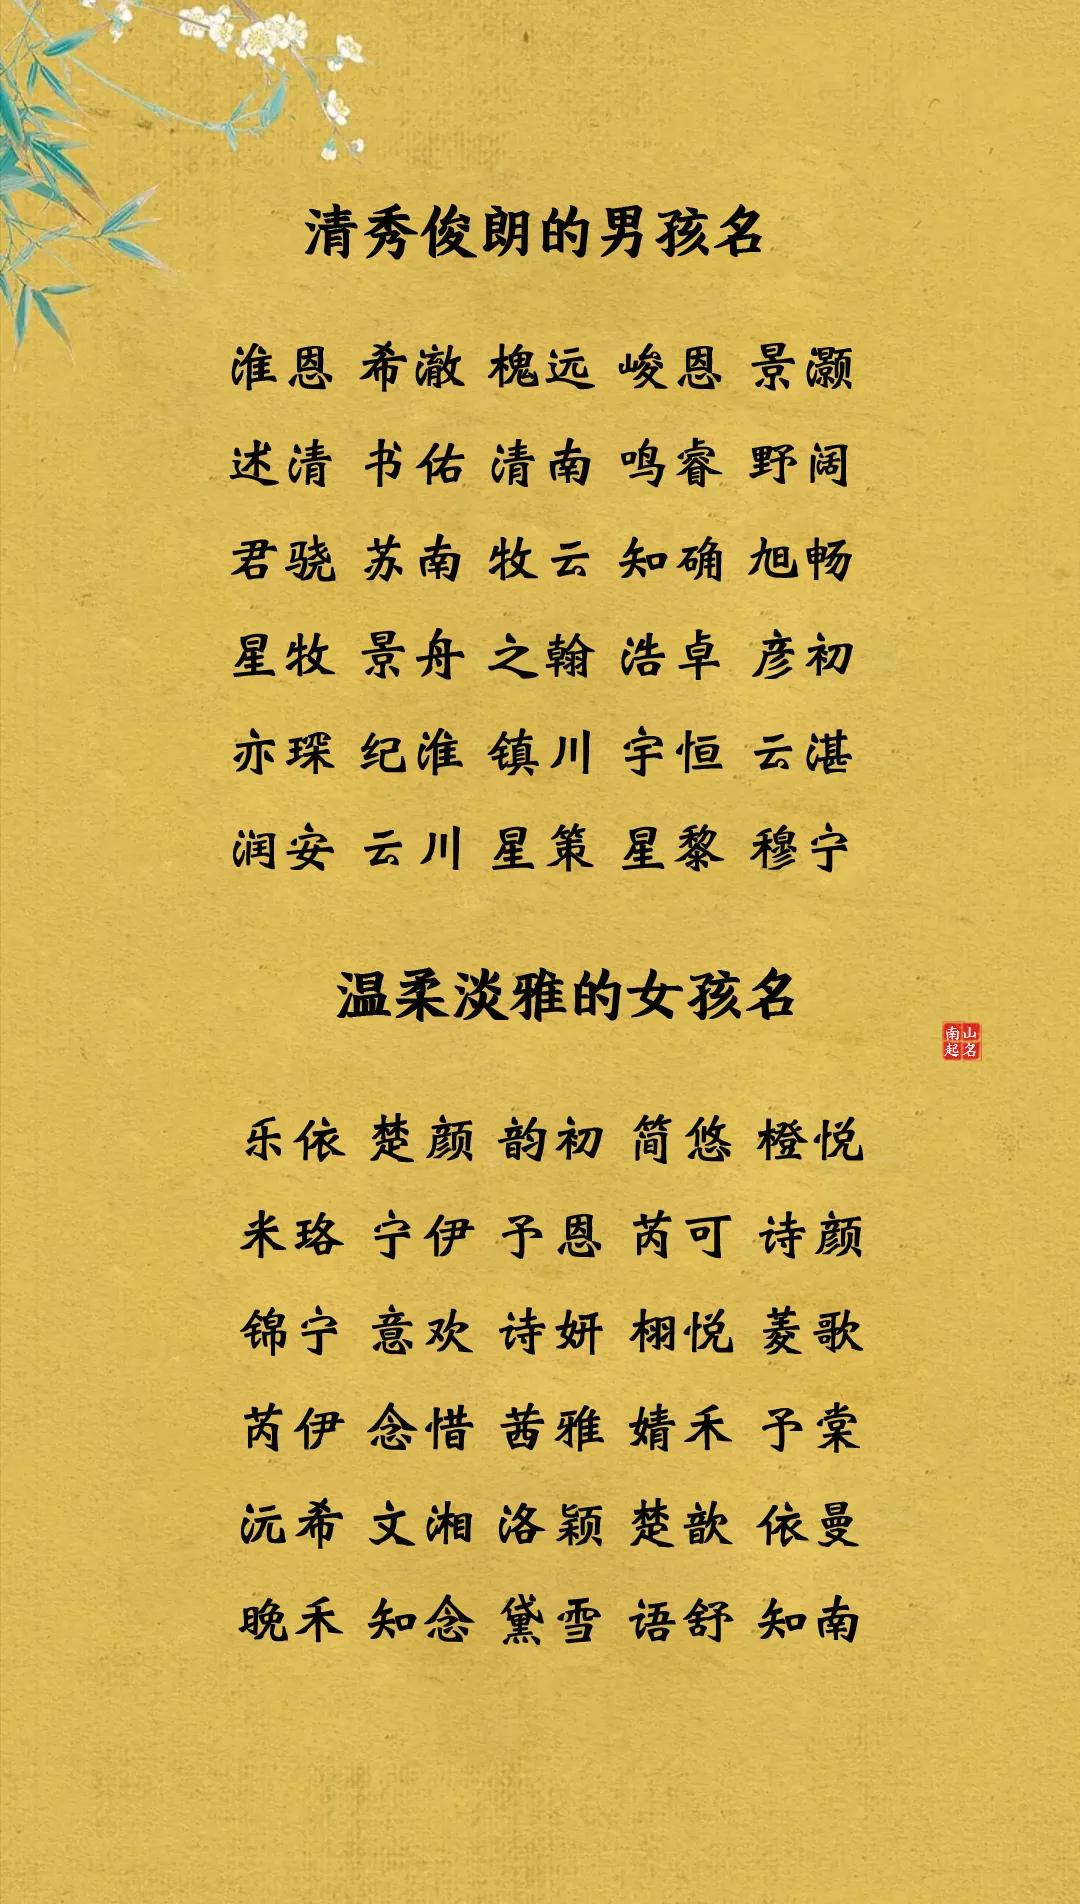 清秀俊朗的男孩名
淮恩 希澈 槐远 峻恩 景灏
述清 书佑 清南 鸣睿 野阔
君骁 苏南 牧云 知确 旭畅
星牧 景舟 之翰 浩卓 彦初
亦琛 纪淮 镇川 宇恒 云湛
润安 云川 星策 星黎 穆宁
温柔淡雅的女孩名
南山
起名
乐依 楚颜 韵初 简悠 橙悦
米珞 宁伊 予恩 芮可 诗颜
锦宁 意欢 诗妍 栩悦 菱歌
芮伊 念惜 茜雅 婧禾 予棠
沅希 文湘 洛颖 楚歆 依曼
晚禾 知念 黛雪 语舒 知南